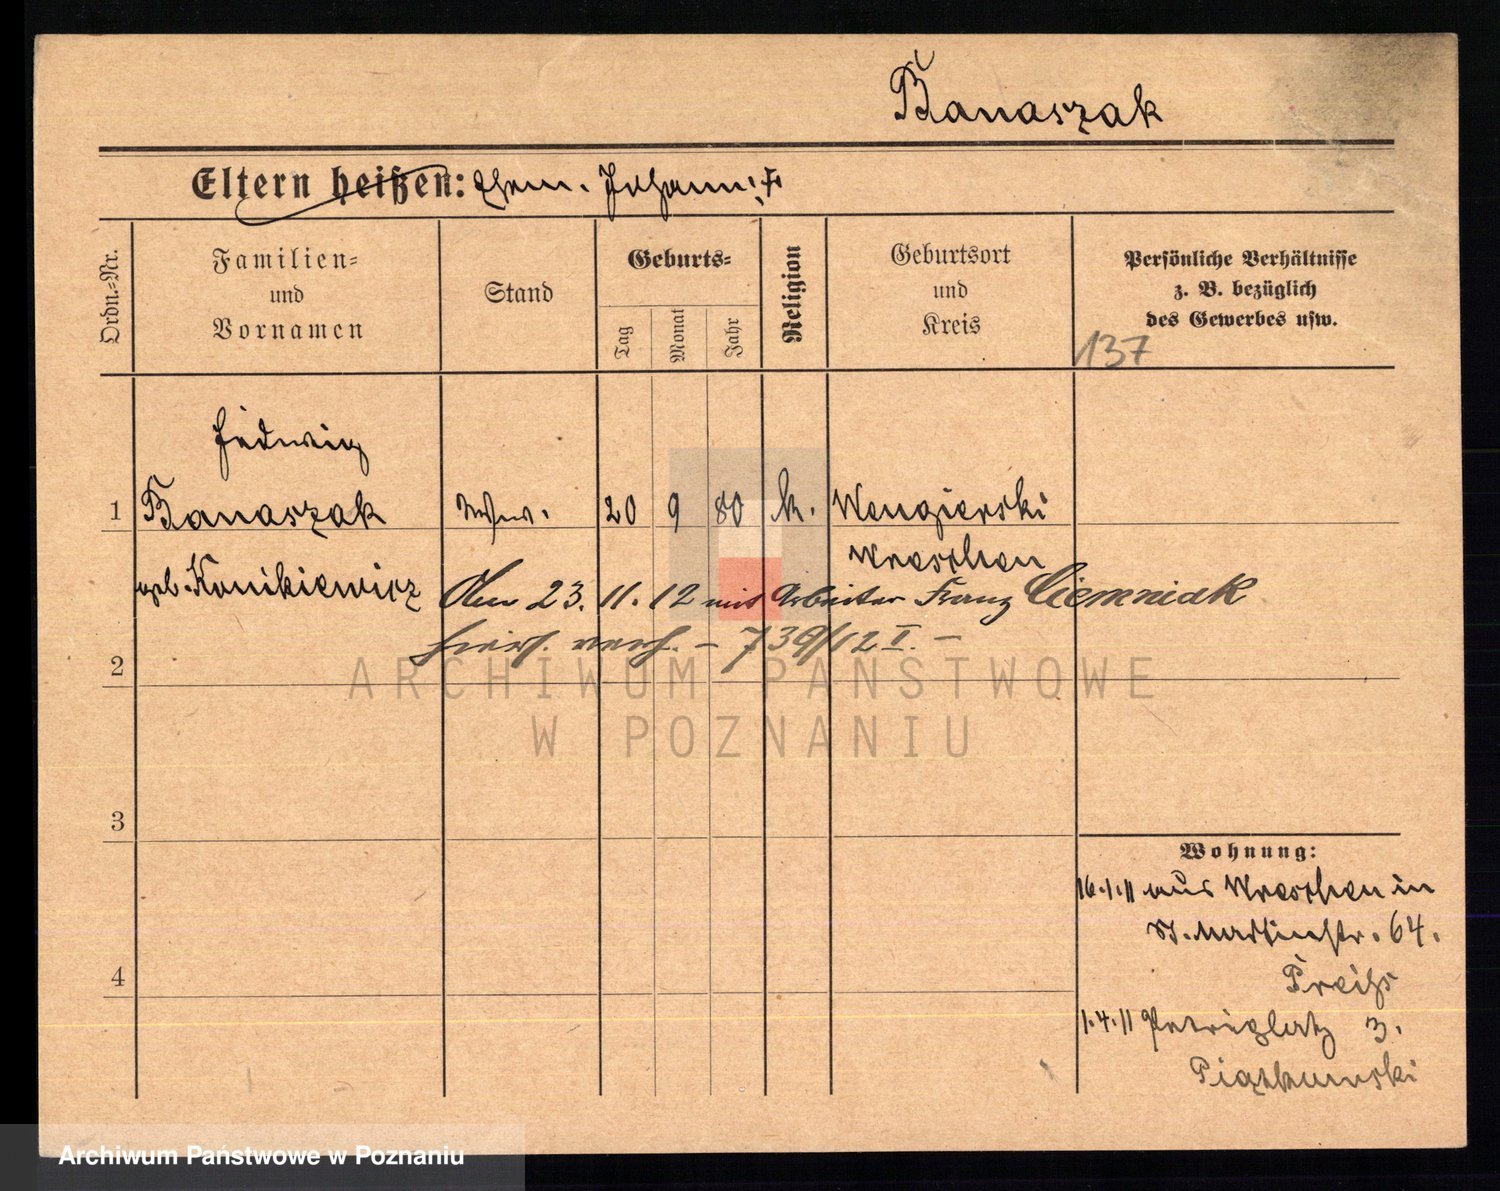 Banaszak
Eltern heißen: Ehem. Johann, †
Ordn.-Nr.
Familien-
und
Vornamen
Stand
Geburts-
Tag
Monat
Jahr
Religion
Geburtsort
und
Kreis
Persönliche Verhältnisse
z. B. bezüglich
des Gewerbes usw.
137
Hedwig
1 Banaszak Wwe. 20 9 80 k. Wengierski
Wreschen
geb. Konikiewicz
Am 23. 11. 12 mit Arbeiter Franz Ciemniak
hiers. verh. – 739/12 I. –
2
ARCHIWUM PAŃSTWOWE
W POZNANIU
3
Wohnung:
16.1.11 aus Wreschen in
St. Martinstr. 64.
Preiß
4
1.4.11 Petriplatz 3.
Piątkowski
Archiwum Państwowe w Poznaniu